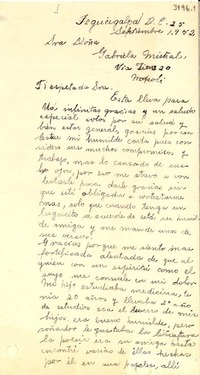 3896.1
Tegucigalpa D.C. 25
Septiembre, 1952
Sra Doña
Gabriela Mistral,
Via Tasso
Napoli
Respetada Sra.
Esta lleva para
Ud. infinitas gracias y un saludo
especial votos por su salud y
bien estar general, gracias por con
testar mi humilde carta pues con
sidero sus muchos compromisos y
trabajo, mas lo cansado de sus
ojos, pero yo me atrevo a con
testarle para darle gracias sin
que esté obligada a contestarme
mas, solo que cuando tenga un
lugarcito se acuerde de esta su humil
de amiga y me mande unos de
sus versos.
Gracias porque me siento mas
fortificada alentada de que al
quien con un espíritu como el
suyo me consuele en mi dolor
Mi hijo estudiaba medicina, te
nia 20 años y llevaba 2º año
de estudios era el tesoro de mis
hijos, era bueno humilde, pero
soñador le gustaba la literatura
la poesia era su amiga hasta
encontré varias de ellas hechas
por él en unos papeles, allí